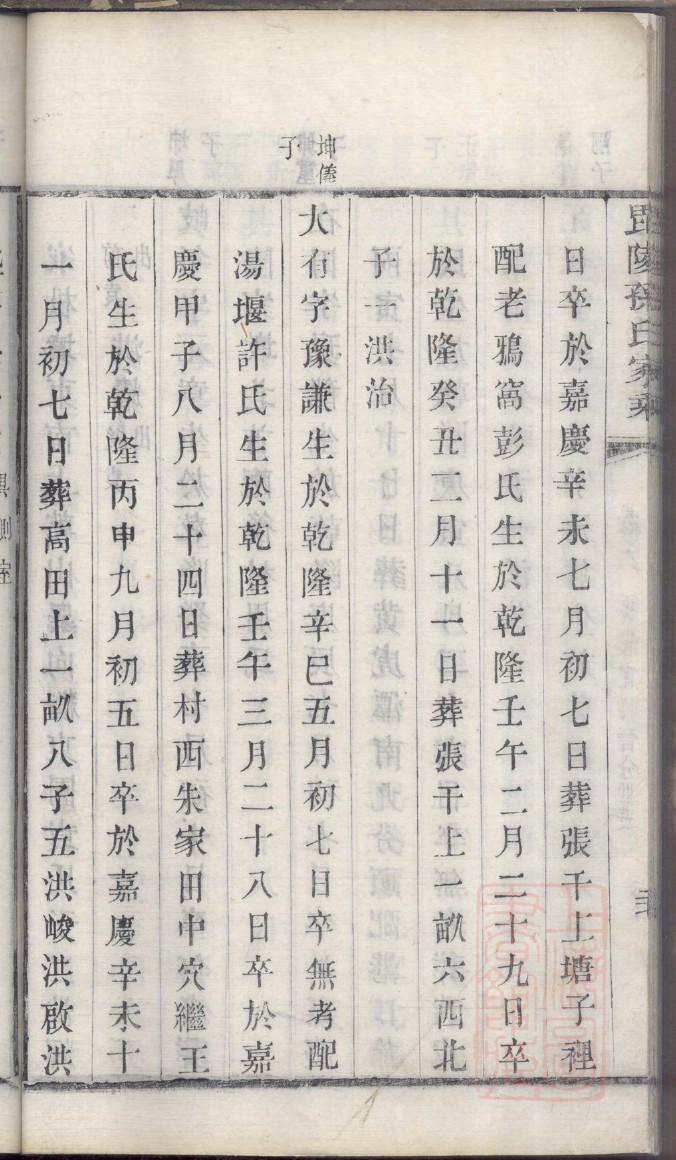 毘陵孫氏家乘
日卒於嘉慶辛未七月初七日葬張干上塘子裡
配老鴉窩彭氏生於乾隆壬午二月二十九日卒
於乾隆癸丑二月十一日葬張干上一畝六西北
子一洪治
坤儀子
大有字豫謙生於乾隆辛巳五月初七日卒無考配
湯堰許氏生於乾隆壬午三月二十八日卒於嘉
慶甲子八月二十四日葬村西朱家田中穴繼王
氏生於乾隆丙申九月初五日卒於嘉慶辛未十
一月初七日葬高田上一畝八子五洪峻洪啟洪